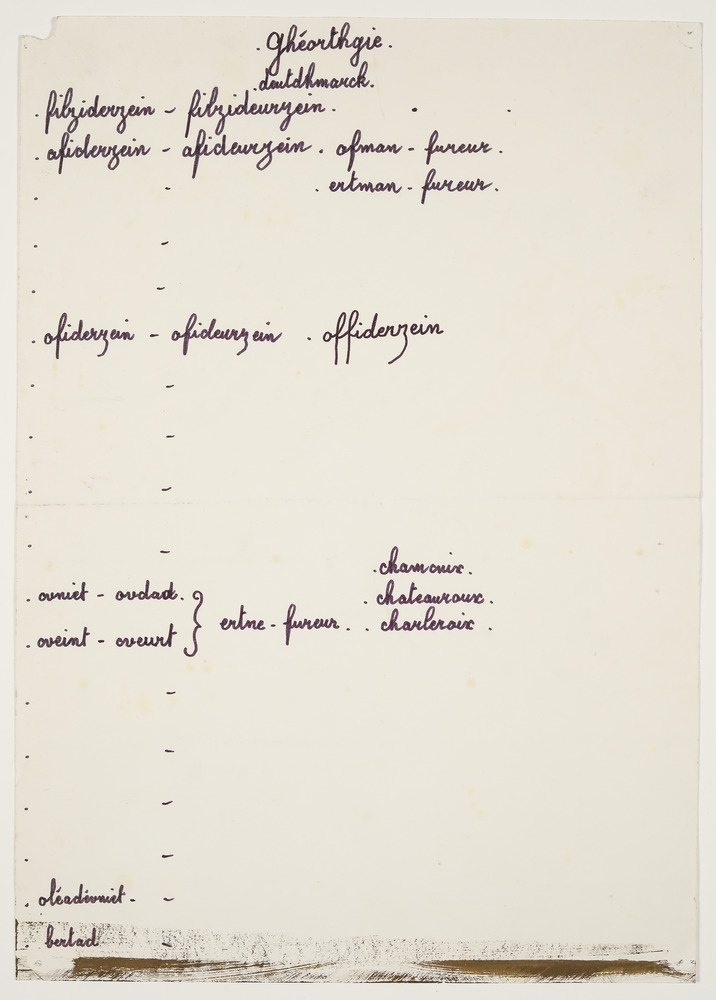 . Ghéorthgie.
. deutdhmarck.
. filziderzein - filzideurzein.
. afiderzein - afideurzein. ofman - fureur.
. ertman - fureur.
. ofiderzein - ofideurzein . offiderzein
. chamonix.
. ovniet - ovdad. . chateauroux.
} ertne - fureur. . charleroix.
. oveint - oveurt
. oléadivniet. -
. bertad -